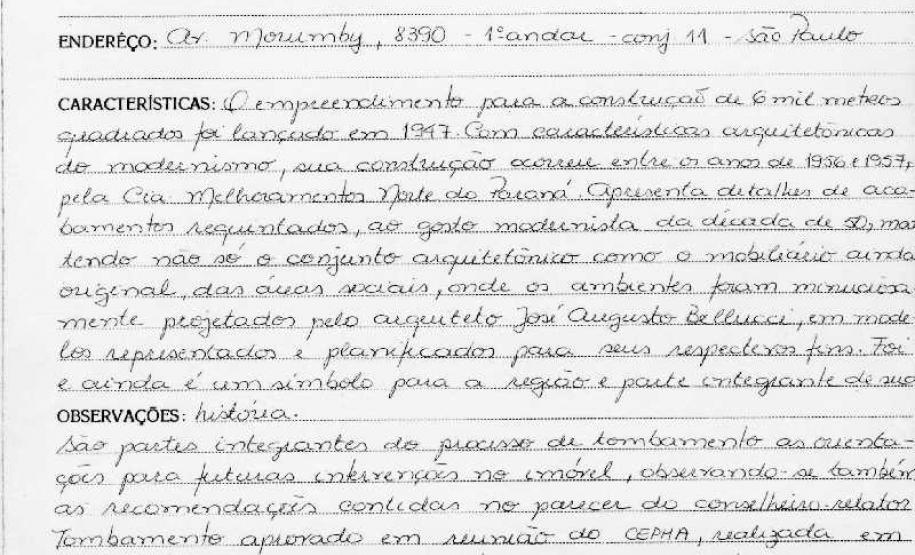 ENDEREÇO: Av. Morumby, 8390 - 1º andar - conj 11 - São Paulo
CARACTERÍSTICAS: O empreendimento para a construção de 6 mil metros
quadrados foi lançado em 1947. Com características arquitetônicas
do modernismo, sua construção ocorreu entre os anos de 1956 e 1957,
pela Cia. Melhoramentos Norte do Paraná. Apresenta detalhes de aca-
bamentos requintados, ao gosto modernista da década de 50, man
tendo não só o conjunto arquitetônico como o mobiliário ainda
original, das áreas sociais, onde os ambientes foram minuciosa
mente projetados pelo arquiteto José Augusto Bellucci, em mode-
los representados e planificados para seus respectivos fins. Foi
e ainda é um símbolo para a região e parte integrante de sua
OBSERVAÇÕES: história.
São partes integrantes do processo de tombamento as orienta-
ções para futuras intervenções no imóvel, observando-se também
as recomendações contidas no parecer do conselheiro relator
Tombamento aprovado em reunião do CEPHA, realizada em